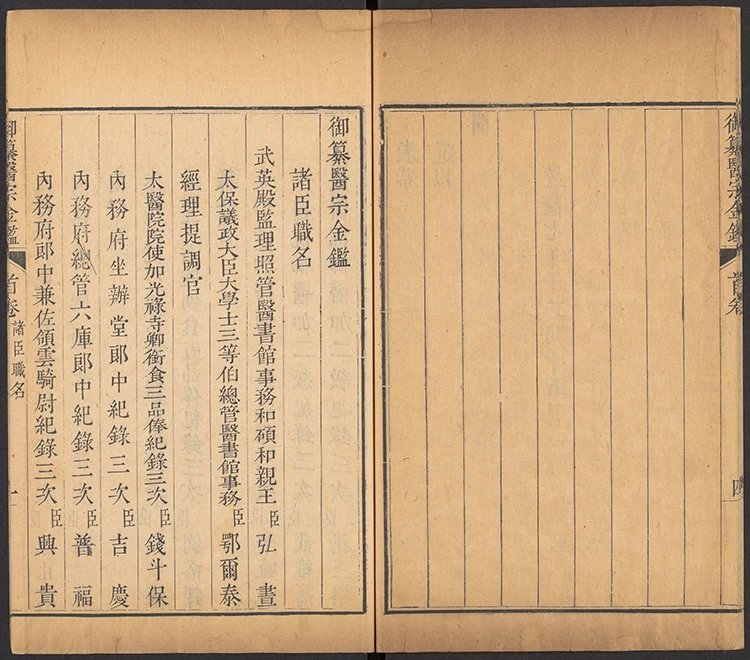 御纂醫宗金鑑
首卷
四
御纂醫宗金鑑
諸臣職名
武英殿監理照管醫書館事務和碩和親王臣弘晝
太保議政大臣大學士三等伯總管醫書館事務臣鄂爾泰
經理提調官
太醫院院使加光祿寺卿銜食三品俸紀錄三次臣錢斗保
內務府坐辦堂郎中紀錄三次臣吉慶
內務府總管六庫郎中紀錄三次臣普福
內務府郎中兼佐領雲騎尉紀錄三次臣興貴
御纂醫宗金鑑
首卷
諸臣職名
一